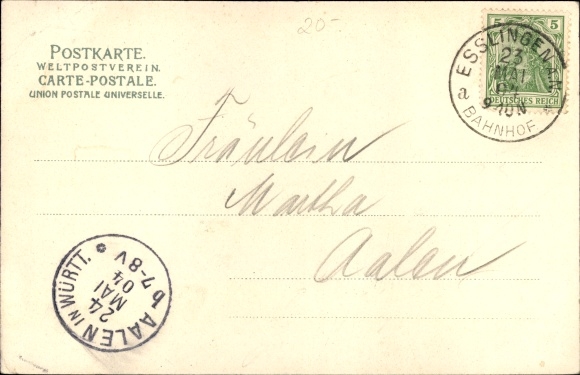 20-
POSTKARTE.
WELTPOSTVEREIN.
CARTE-POSTALE.
UNION POSTALE UNIVERSELLE.
5 5
DEUTSCHES REICH
ESSLINGEN AN
23
MAI
04
9-10N
a
BAHNHOF
Fräulein
Martha
Aalen
AALEN IN WÜRTT.
24
MAI
04
b7-8V